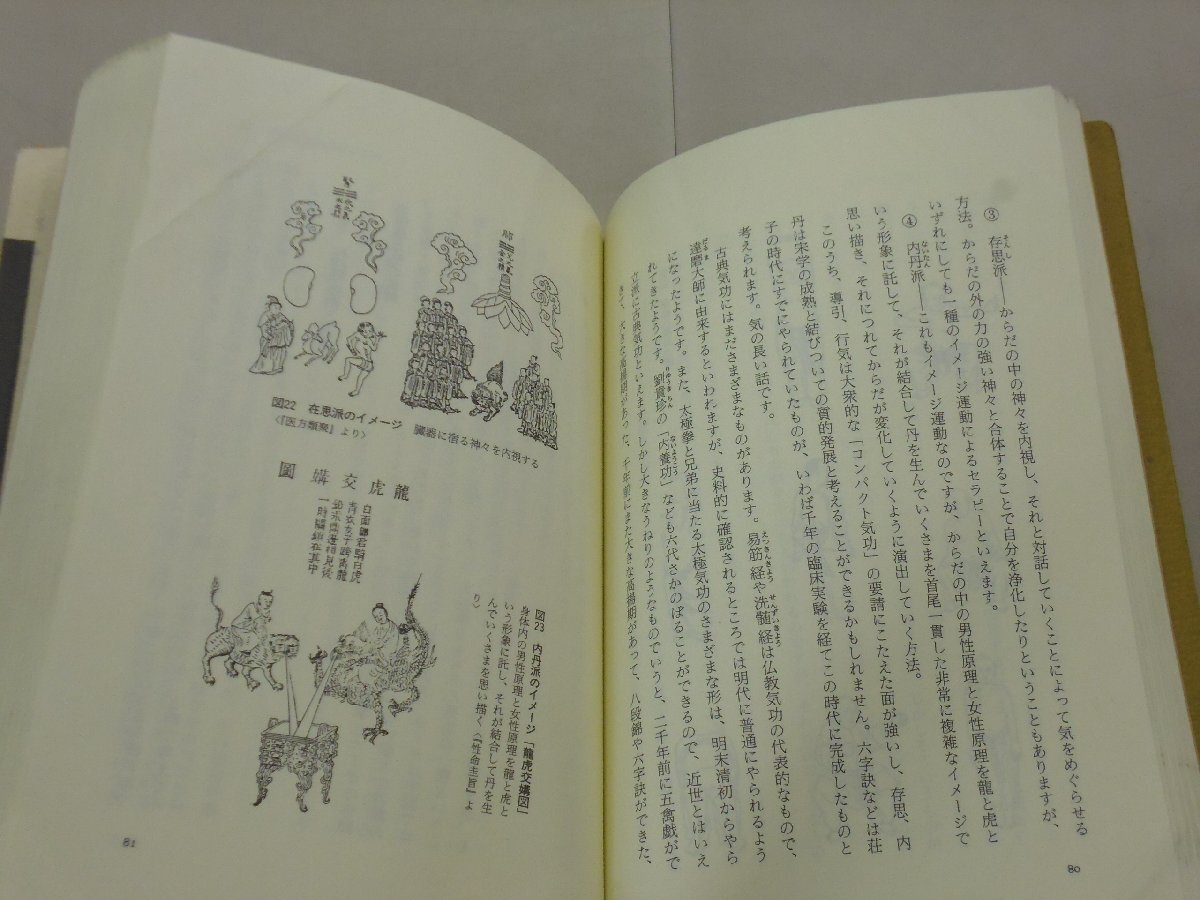 ③ 存思派——からだの中の神々を内視し、それと対話していくことによって気をめぐらせる
方法。からだの外の力の強い神々と合体することで自分を浄化したりということもありますが、
いずれにしても一種のイメージ運動によるセラピーといえます。
④ 内丹派——これもイメージ運動なのですが、からだの中の男性原理と女性原理を龍と虎と
いう形象に託して、それが結合して丹を生んでいくさまを首尾一貫した非常に複雑なイメージで
思い描き、それにつれてからだが変化していくように演出していく方法。
このうち、導引、行気は大衆的な「コンパクト気功」の要請にこたえた面が強いし、存思、内
丹は宋学の成熟と結びついての質的発展と考えることができるかもしれません。六字訣などは荘
子の時代にすでにやられていたものが、いわば千年の臨床実験を経てこの時代に完成したものと
考えられます。気の長い話です。
古典気功にはまださまざまなものがあります。易筋経や洗髄経は仏教気功の代表的なもので、
達磨大師に由来するといわれますが、史料的に確認されるところでは明代に普通にやられるよう
になったようです。また、太極拳と兄弟に当たる太極気功のさまざまな形は、明末清初からやら
れてきたようです。劉貴珍の「内養功」なども六代さかのぼることができるので、近世とはいえ
立派に古典気功といえます。しかし大きなうねりのようなものでいうと、二千年前に五禽戯がで
きて、大きな高揚期があった、千年前にまた大きな高揚期があって、八段錦や六字訣ができた、
80
図22 在思派のイメージ 臓器に宿る神々を内視する
〈『医方類聚』より〉
龍虎交媾圖
白面郎君騎白虎
青衣女子跨青龍
鉛汞鼎邊相見後
一時關鎖在其中
図23 内丹派のイメージ「龍虎交媾図」
身体内の男性原理と女性原理を龍と虎と
いう形象に託し、それが結合して丹を生
んでいくさまを思い描く〈『性命圭旨』よ
り〉
81